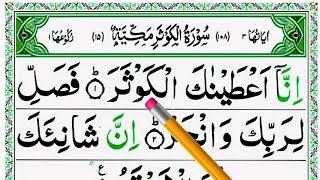 اٰيَاتُهَا ٣ (١٠٨) سُوْرَةُ الْكَوْثَرِ مَكِّيَّةٌ (١٥) رُكُوْعُهَا ١
اِنَّاۤ اَعْطَيْنٰكَ الْكَوْثَرَ ؕ ﴿١﴾ فَصَلِّ
لِرَبِّكَ وَانْحَرْ ؕ ﴿٢﴾ اِنَّ شَانِئَكَ